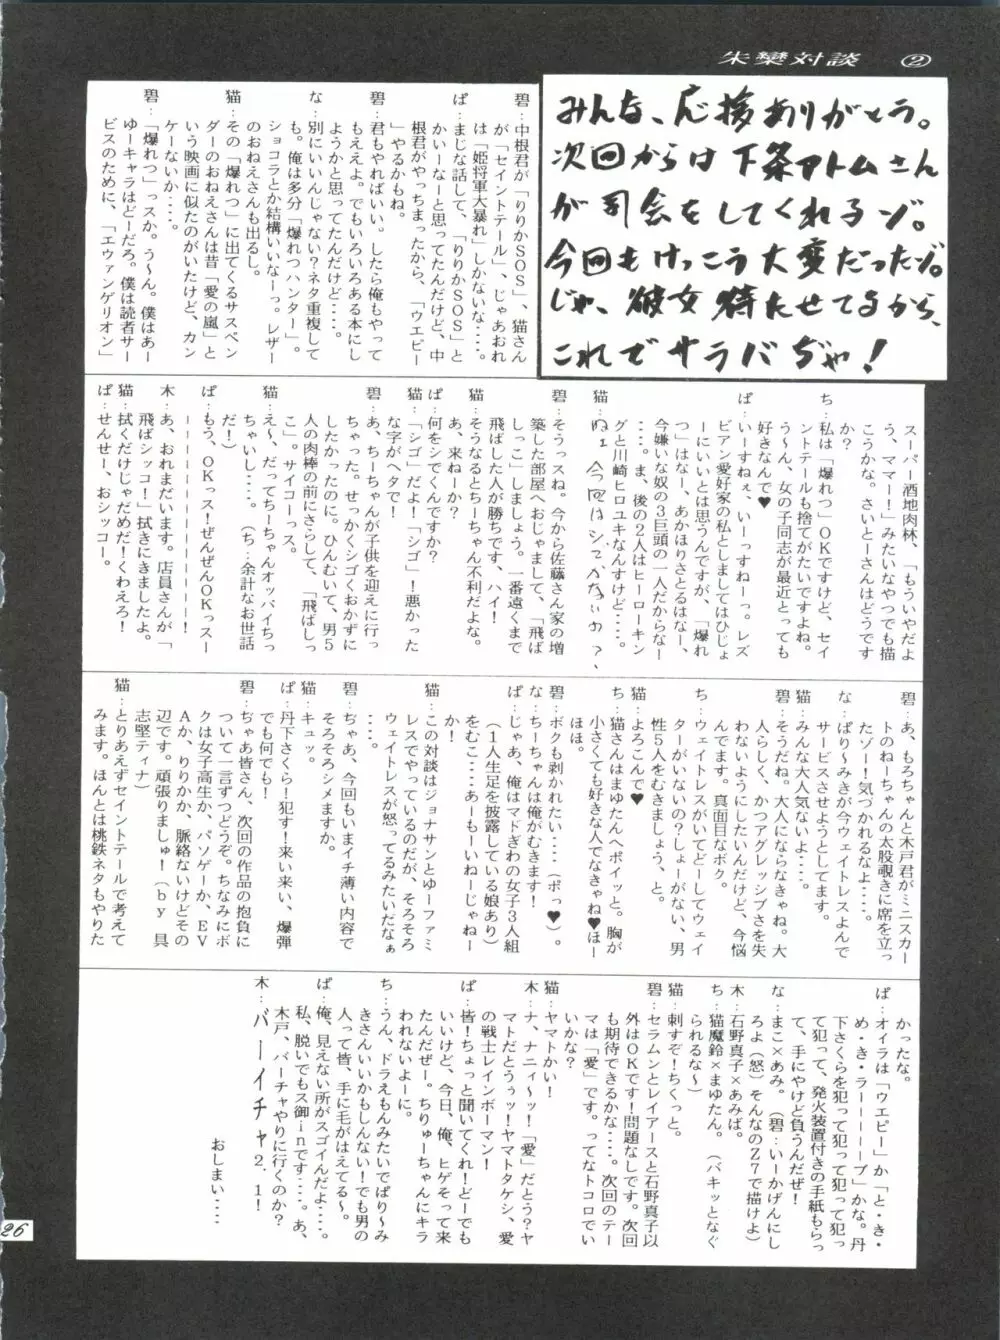 朱欒対談 ②
みんな、応援ありがとう。
次回からは下条アトムさん
が司会をしてくれるゾ。
今回もけっこう大変だったゾ。
じゃ、彼女待たせてるから、
これでサラバぢゃ！
碧：中根君が「りりかSOS」、猫さん
が「セイントテール」、じゃあおれ
は「姫将軍大暴れ」しかないな‥‥。
ぱ：まじな話して、「りりかSOS」と
かいーなーと思ってたんだけど、中
根君がやっちまったから、「ウエピー
」やるかもね。
碧：君もやればいい。したら俺もやって
もええよ。でもいろいろある本にし
ようかと思ってたんだけど‥‥。
な：別にいいんじゃない？ネタ重複して
も。俺は多分「爆れつハンター」。
ショコラとか結構いいなーっ。レザー
のおねえさんも出るし。
猫：その「爆れつ」に出てくるサスペン
ダーのおねえさんは昔「愛の嵐」と
いう映画に似たのがいたけど、カン
ケーないか‥‥。
碧：「爆れつ」っスか。う～ん。僕はあー
ゆーキャラはどーだろ。僕は読者サー
ビスのために、「エヴァンゲリオン」
スーパー酒地肉林、「もういやだよ
う、ママー！」みたいなやつでも描
こうかな。さいとーさんはどうです
か？
ち：私は「爆れつ」OKですけど、セイ
ントテールも捨てがたいですよね。
う～ん、女の子同志が最近とっても
好きなんで♥
ぱ：いーすねぇ、いーっすねーっ。レズ
ビアン愛好家の私としましてはひじょ
ーにいいとは思うんですが、「爆れ
つ」はなー、あかほりさとるはなー、
今嫌いな奴の3巨頭の一人だからなー
。ま、後の2人はヒーローキン
グと川崎ヒロユキなんすけど‥‥。
猫：ねェ、今回はシてかないの？、
碧：そうっスね。今から佐藤さん家の増
築した部屋へおじゃまして、「飛ば
しっこ」しましょう。一番遠くまで
飛ばした人が勝ちです、ハイ！
猫：そうなるとちーちゃん不利だよな。
あ、来ねーか？
ぱ：何をシでくんですか？
猫：「シゴ」だよ！「シゴ」！悪かった
な字がヘタで！
碧：あ、ちーちゃんが子供を迎えに行っ
ちゃった。せっかくシゴくおかずに
したかったのに。ひんむいて、男5
人の肉棒の前にさらして、「飛ばしっ
こ」。サイコーっス。
猫：え～、だってちーちゃんオッパイちっ
ちゃいし‥‥。（ち：余計なお世話
だ！）
ぱ：もう、OKっス！ぜんぜんOKっスー
ーーーーーーーーー！
木：あ、おれまだいます。店員さんが「
飛ばシッコ！」拭きにきましたよ。
猫：拭くだけじゃだめだ！くわえろ！
ぱ：せんせー、おシッコー。
碧：あ、もろちゃんと木戸君がミニスカー
トのねーちゃんの太股覗きに席を立っ
たゾー！気づかれるなよー‥‥。
な：ぱり～みきが今ウェイトレスよんで
サービスさせようとしてます。
猫：みんな大人気ないよ‥‥。
碧：そうだね。大人にならなきゃね。大
人らしく、かつアグレッシブさを失
わないようにしたいんだけど、今悩
んでます。真面目なボク。
ち：ウェイトレスがいてどーしてウェイ
ターがいないの？しょーがない、男
性5人をむきましょう、と。
猫：よろこんで♥
ち：猫さんはまゆたんへポイッと。胸が
小さくても好きな人でなきゃね♥ほー
ほほ。
碧：ボクも剥かれたい‥‥（ポっ♥）。
な：ちーちゃんは俺がむきます！
ぱ：じゃあ、俺はマドぎわの女子3人組
（1人生足を披露している娘あり）
をむこ‥‥あーもーいねーじゃねー
か！
猫：この対談はジョナサンとゆーファミ
レスでやっているのだが、そろそろ
ウェイトレスが怒ってるみたいだなぁ
‥‥。
碧：ぢゃあ、今回もいまイチ薄い内容で
そろそろシメますか。
猫：キュッ。
ぱ：丹下さくら！犯す！来い来い、爆弾
でも何でも！
碧：ぢゃあ皆さん、次回の作品の抱負に
ついて一言ずつどうぞ。ちなみにボ
クは女子高生か、パソゲーか、EV
Aか、りりかか、脈絡ないけどその
辺です。頑張りましゅ！（by　具
志堅ティナ）
猫：とりあえずセイントテールで考えて
みます。ほんとは桃鉄ネタもやりた
かったな。
ぱ：オィラは「ウエピー」か「と・き・
め・き・ラーーーーブ」かな。丹
下さくらを犯って犯って犯って犯っ
て犯って、発火装置付きの手紙もらっ
て、手にやけど負うんだぜ！
な：まこ×あみ。（碧：いーかげんにし
ろよ（怒）そんなのZ7で描けよ）
木：石野真子×あみば。
ち：猫魔鈴×まゆたん。（バキッとなぐ
られるな～）
猫：刺すぞ！ちくっと。
碧：セラムンとレイアースと石野真子以
外はOKです！問題なしです。次回
も期待できるかな‥‥。次回のテー
マは「愛」です。ってなトコロでい
いかな？
猫：ヤマトかい！
木：ナ、ナニィ～ッ！「愛」だとう？ヤ
マトだとうぅッ！ヤマトタケシ、愛
の戦士レインボーマン！
ぱ：皆！ちょっと聞いてくれ！どーでも
いいけど、今日、俺、ヒゲそって来
たんだぜー。ちりゅーちゃんにキラ
われないよーに。
ち：うん、ドラえもんみたいでぱり～み
きさんいいかもしんない！でも男の
人って皆、手に毛がはえてる～。
ぱ：俺、見えない所がスゴイんだよ‥‥。
私、脱いでもス御inです‥‥。あ、
木戸、バーチャやりに行くのか？
木：バーイチャ2．1！
おしまい‥‥
26